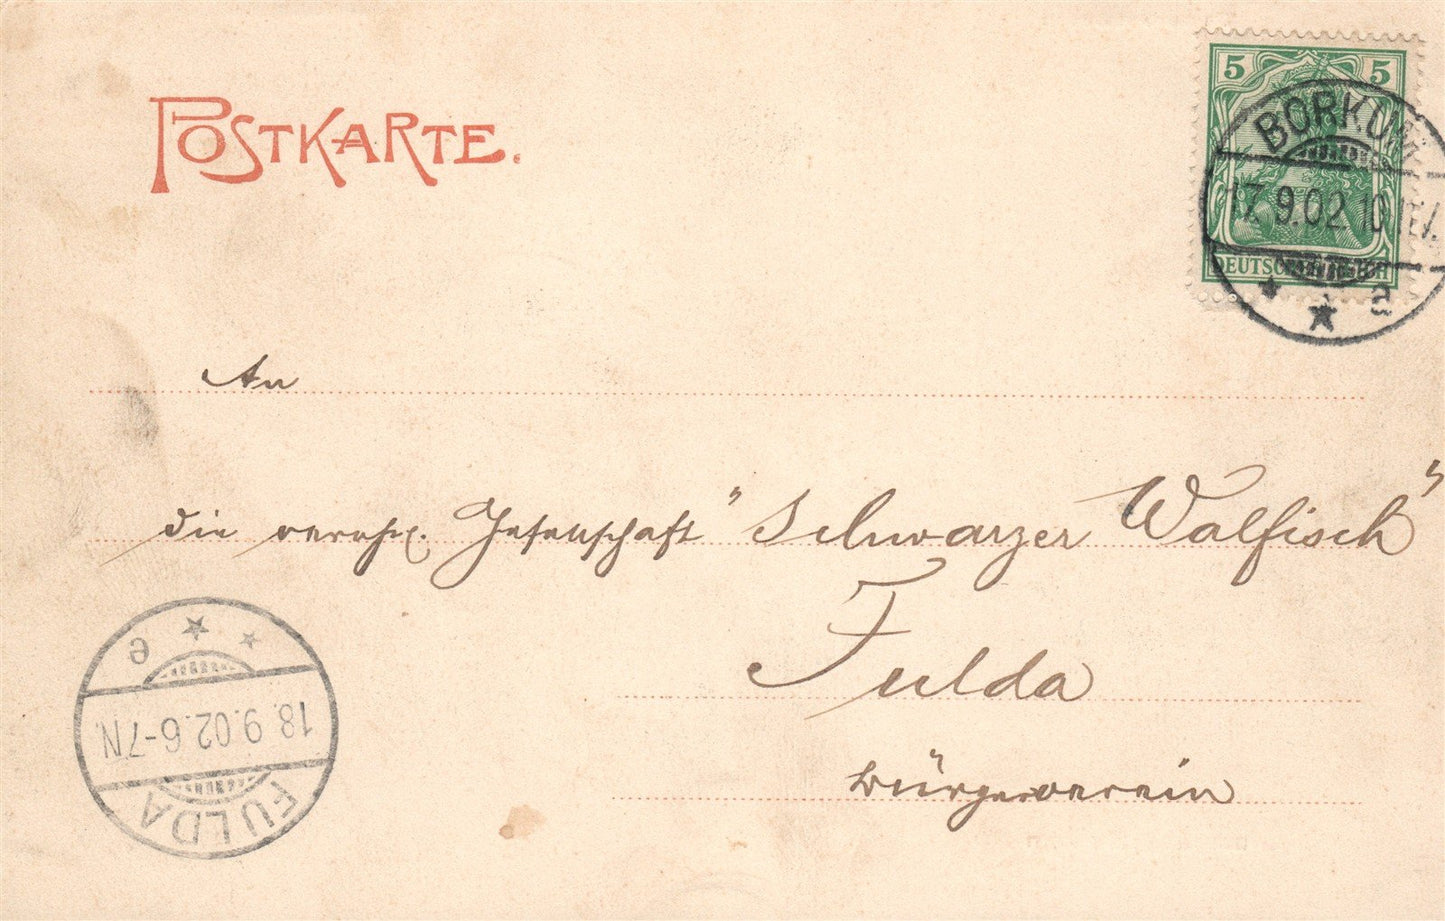 POSTKARTE.
5 5
DEUTSCHES REICH
BORKUM
17.9.02.10
a
An
die verehrl. Gesellschaft "Schwarzer Walfisch"
Fulda
Bürgerverein
e
18.9.02.6-7N.
FULDA